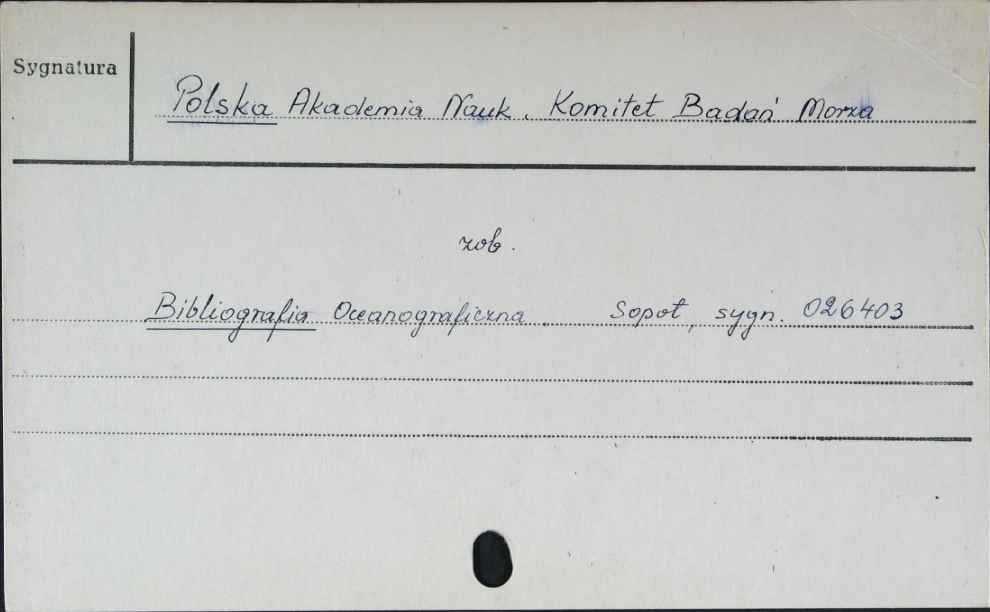 Sygnatura
Polska Akademia Nauk. Komitet Badań Morza
zob.
Bibliografia Oceanograficzna. Sopot, sygn. 026403